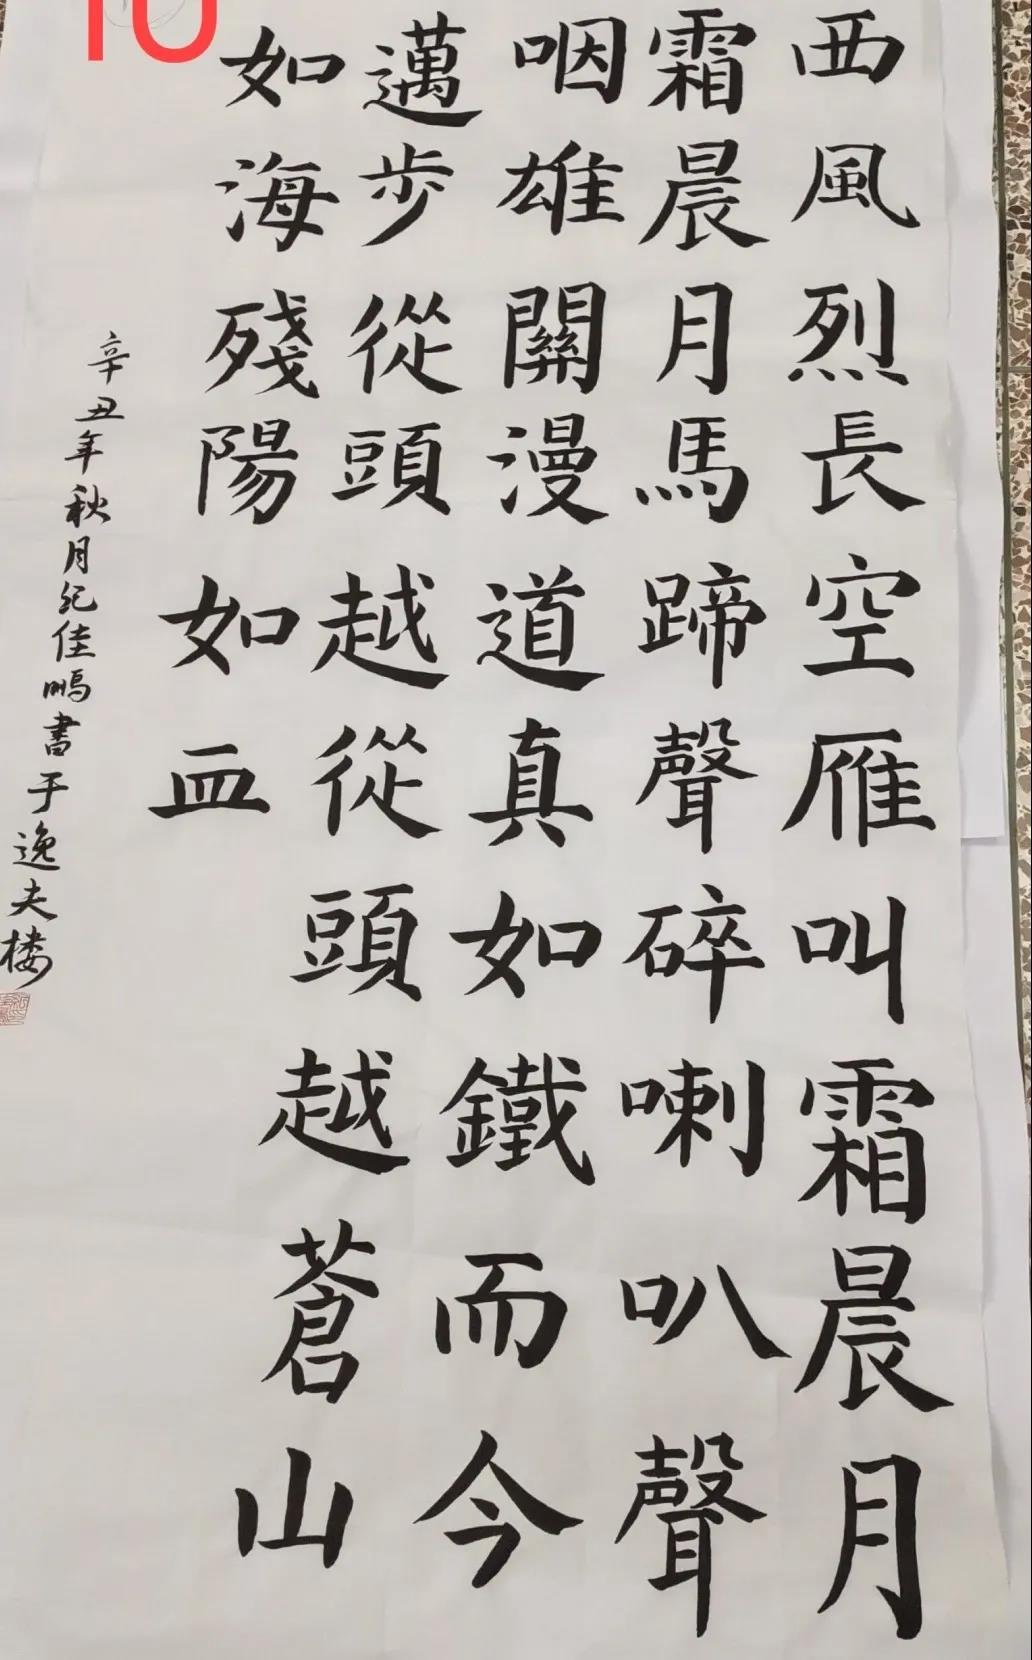 10
西風烈長空雁叫霜晨月
霜晨月馬蹄聲碎喇叭聲
咽雄關漫道真如鐵而今
邁步從頭越從頭越蒼山
如海殘陽如血
辛丑年秋月紀佳鵬書于逸夫楼